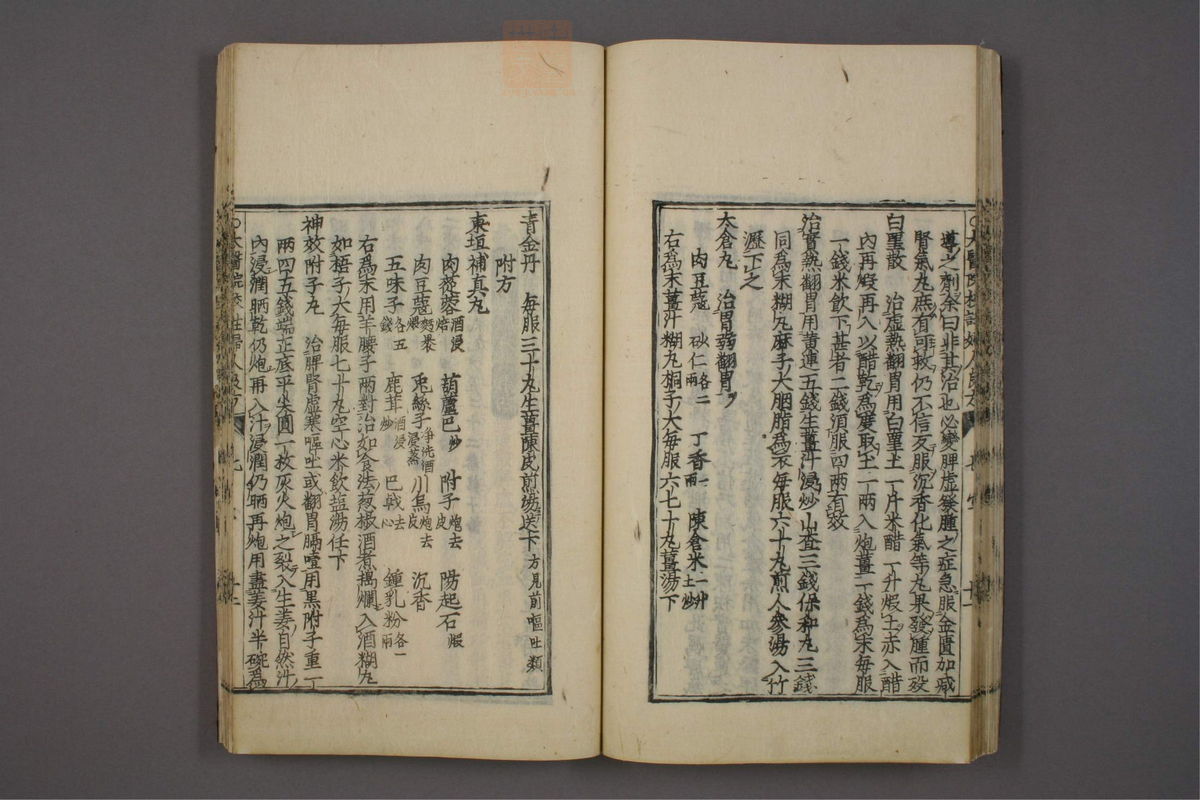 導之劑余曰非其治也必變脾虛發腫之症急服金匱加减
腎氣丸庶有可救仍不信反服沉香化氣等丸果發腫而歿
白堊散 治虛熱翻胃用白堊土一斤米醋一升煅土赤入醋
內再煅再入以醋乾爲度取土一兩入炮薑一錢爲末每服
一錢米飲下甚者二錢須服四兩有效
治實熱翻胃用黃連五錢生薑汁浸炒山查三錢保和丸三錢
同爲末糊丸麻子大胭脂爲衣每服六十丸煎人參湯入竹
瀝下之
太倉丸 治胃弱翻胃
肉豆蔻 砂仁各二兩 丁香一兩 陳倉米一升土炒
右爲末薑汁糊丸桐子大每服六七十丸薑湯下
青金丹 每服三十丸生薑陳皮煎湯送下方見前嘔吐類
附方
東垣補真丸
肉蓯蓉酒浸焙 葫蘆巴炒 附子炮去皮 陽起石煅
肉豆蔻麪裹煨 兎絲子淨洗酒浸蒸 川烏炮去皮 沉香
五味子各五錢 鹿茸酒浸炒 巴戟去心 鍾乳粉各一兩
右爲末用羊腰子兩對治如食法葱椒酒煮搗爛入酒糊丸
如梧子大每服七十丸空心米飲塩湯任下
神效附子丸 治脾腎虛寒嘔吐或翻胃膈噎用黑附子重一
兩四五錢端正底平尖圓一枚灰火炮之裂入生姜自然汁
內浸潤晒乾仍炮再入汁浸潤仍晒再炮用盡姜汁半碗爲